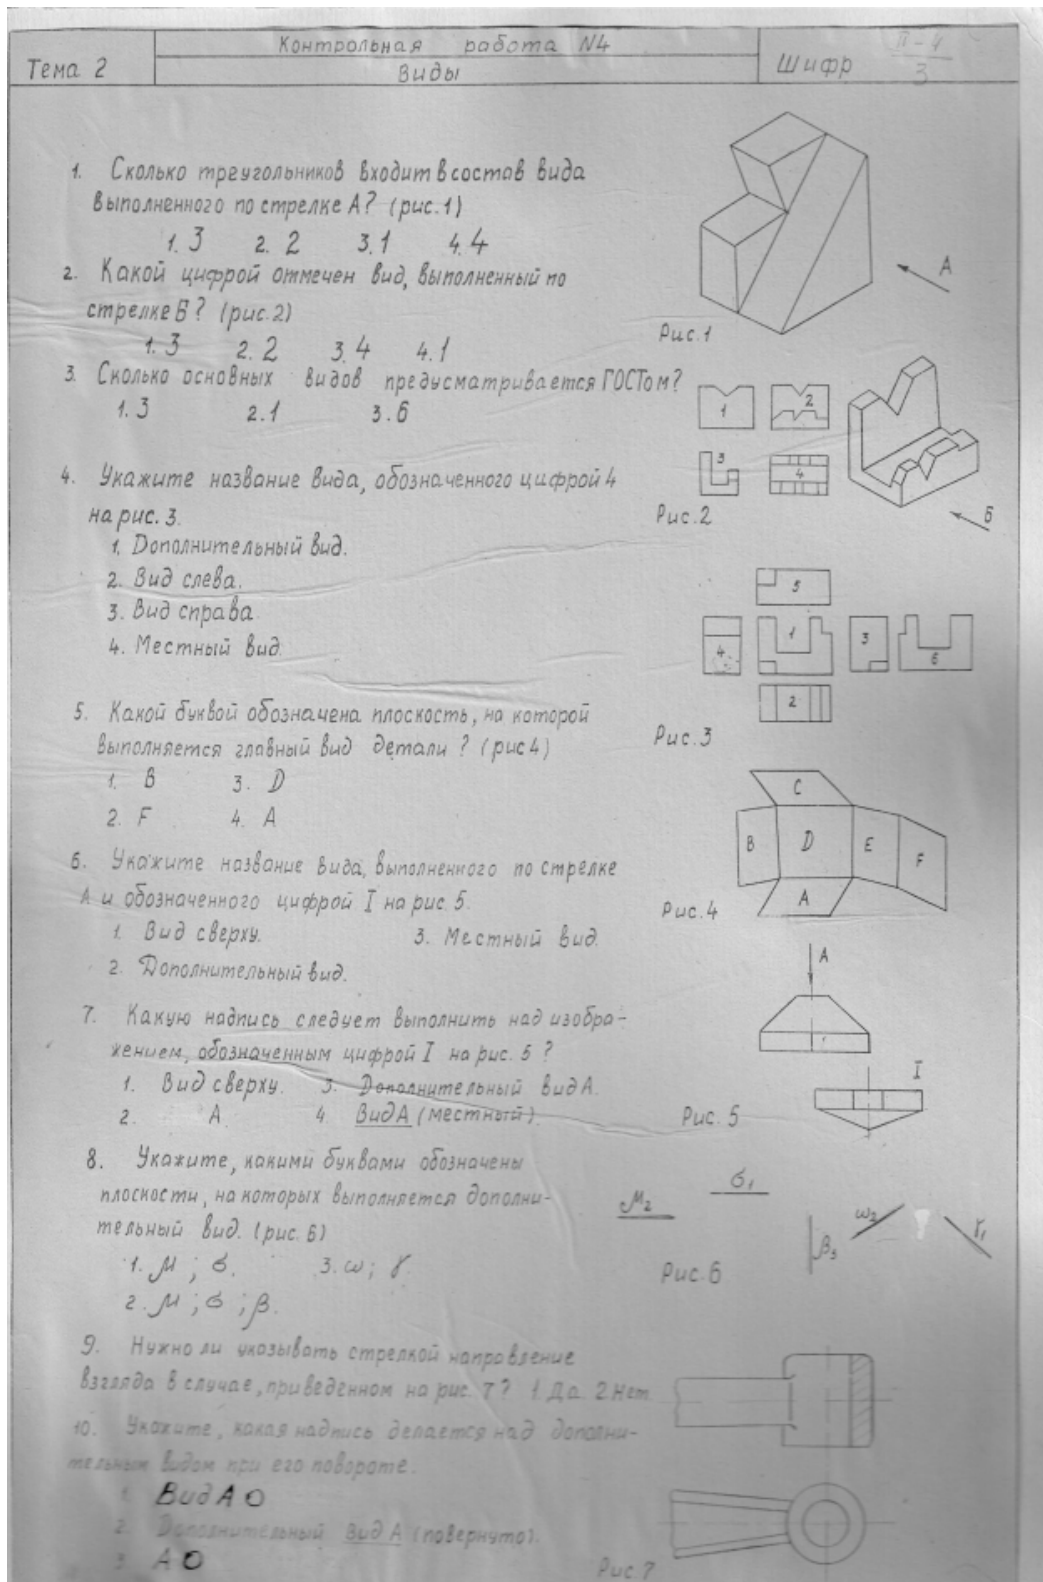 Тема 2
Контрольная работа №4
Виды
Шифр
П-4
3
1. Сколько треугольников входит в состав вида
выполненного по стрелке А? (рис.1)
1. 3 2. 2 3. 1 4. 4
А
Рис.1
2. Какой цифрой отмечен вид, выполненный по
стрелке Б? (рис.2)
1. 3 2. 2 3. 4 4. 1
3. Сколько основных видов предусматривается ГОСТом?
1. 3 2. 1 3. 6
1 2
3 4
Рис.2
Б
4. Укажите название вида, обозначенного цифрой 4
на рис. 3.
1. Дополнительный вид.
2. Вид слева.
3. Вид справа
4. Местный вид.
5
4 1 3 6
2
Рис.3
5. Какой буквой обозначена плоскость, на которой
выполняется главный вид детали? (рис 4)
1. B 3. D
2. F 4. A
C
B D E F
A
Рис.4
6. Укажите название вида, выполненного по стрелке
А и обозначенного цифрой I на рис. 5.
1. Вид сверху. 3. Местный вид.
2. Дополнительный вид.
А
7. Какую надпись следует выполнить над изобра-
жением, обозначенным цифрой I на рис. 5?
1. Вид сверху. 3. Дополнительный вид А.
2. А 4. Вид А (местный).
I
Рис. 5
8. Укажите, какими буквами обозначены
плоскости, на которых выполняется дополни-
тельный вид. (рис. 6)
1. μ; σ. 3. ω; γ.
2. μ; σ; β.
μ2 σ1 β3 ω2 γ1
Рис.6
9. Нужно ли указывать стрелкой направление
взгляда в случае, приведенном на рис. 7? 1. Да. 2. Нет
10. Укажите, какая надпись делается над дополни-
тельным видом при его повороте.
1. Вид А О
2. Дополнительный вид А (повернуто).
3. А О
Рис.7